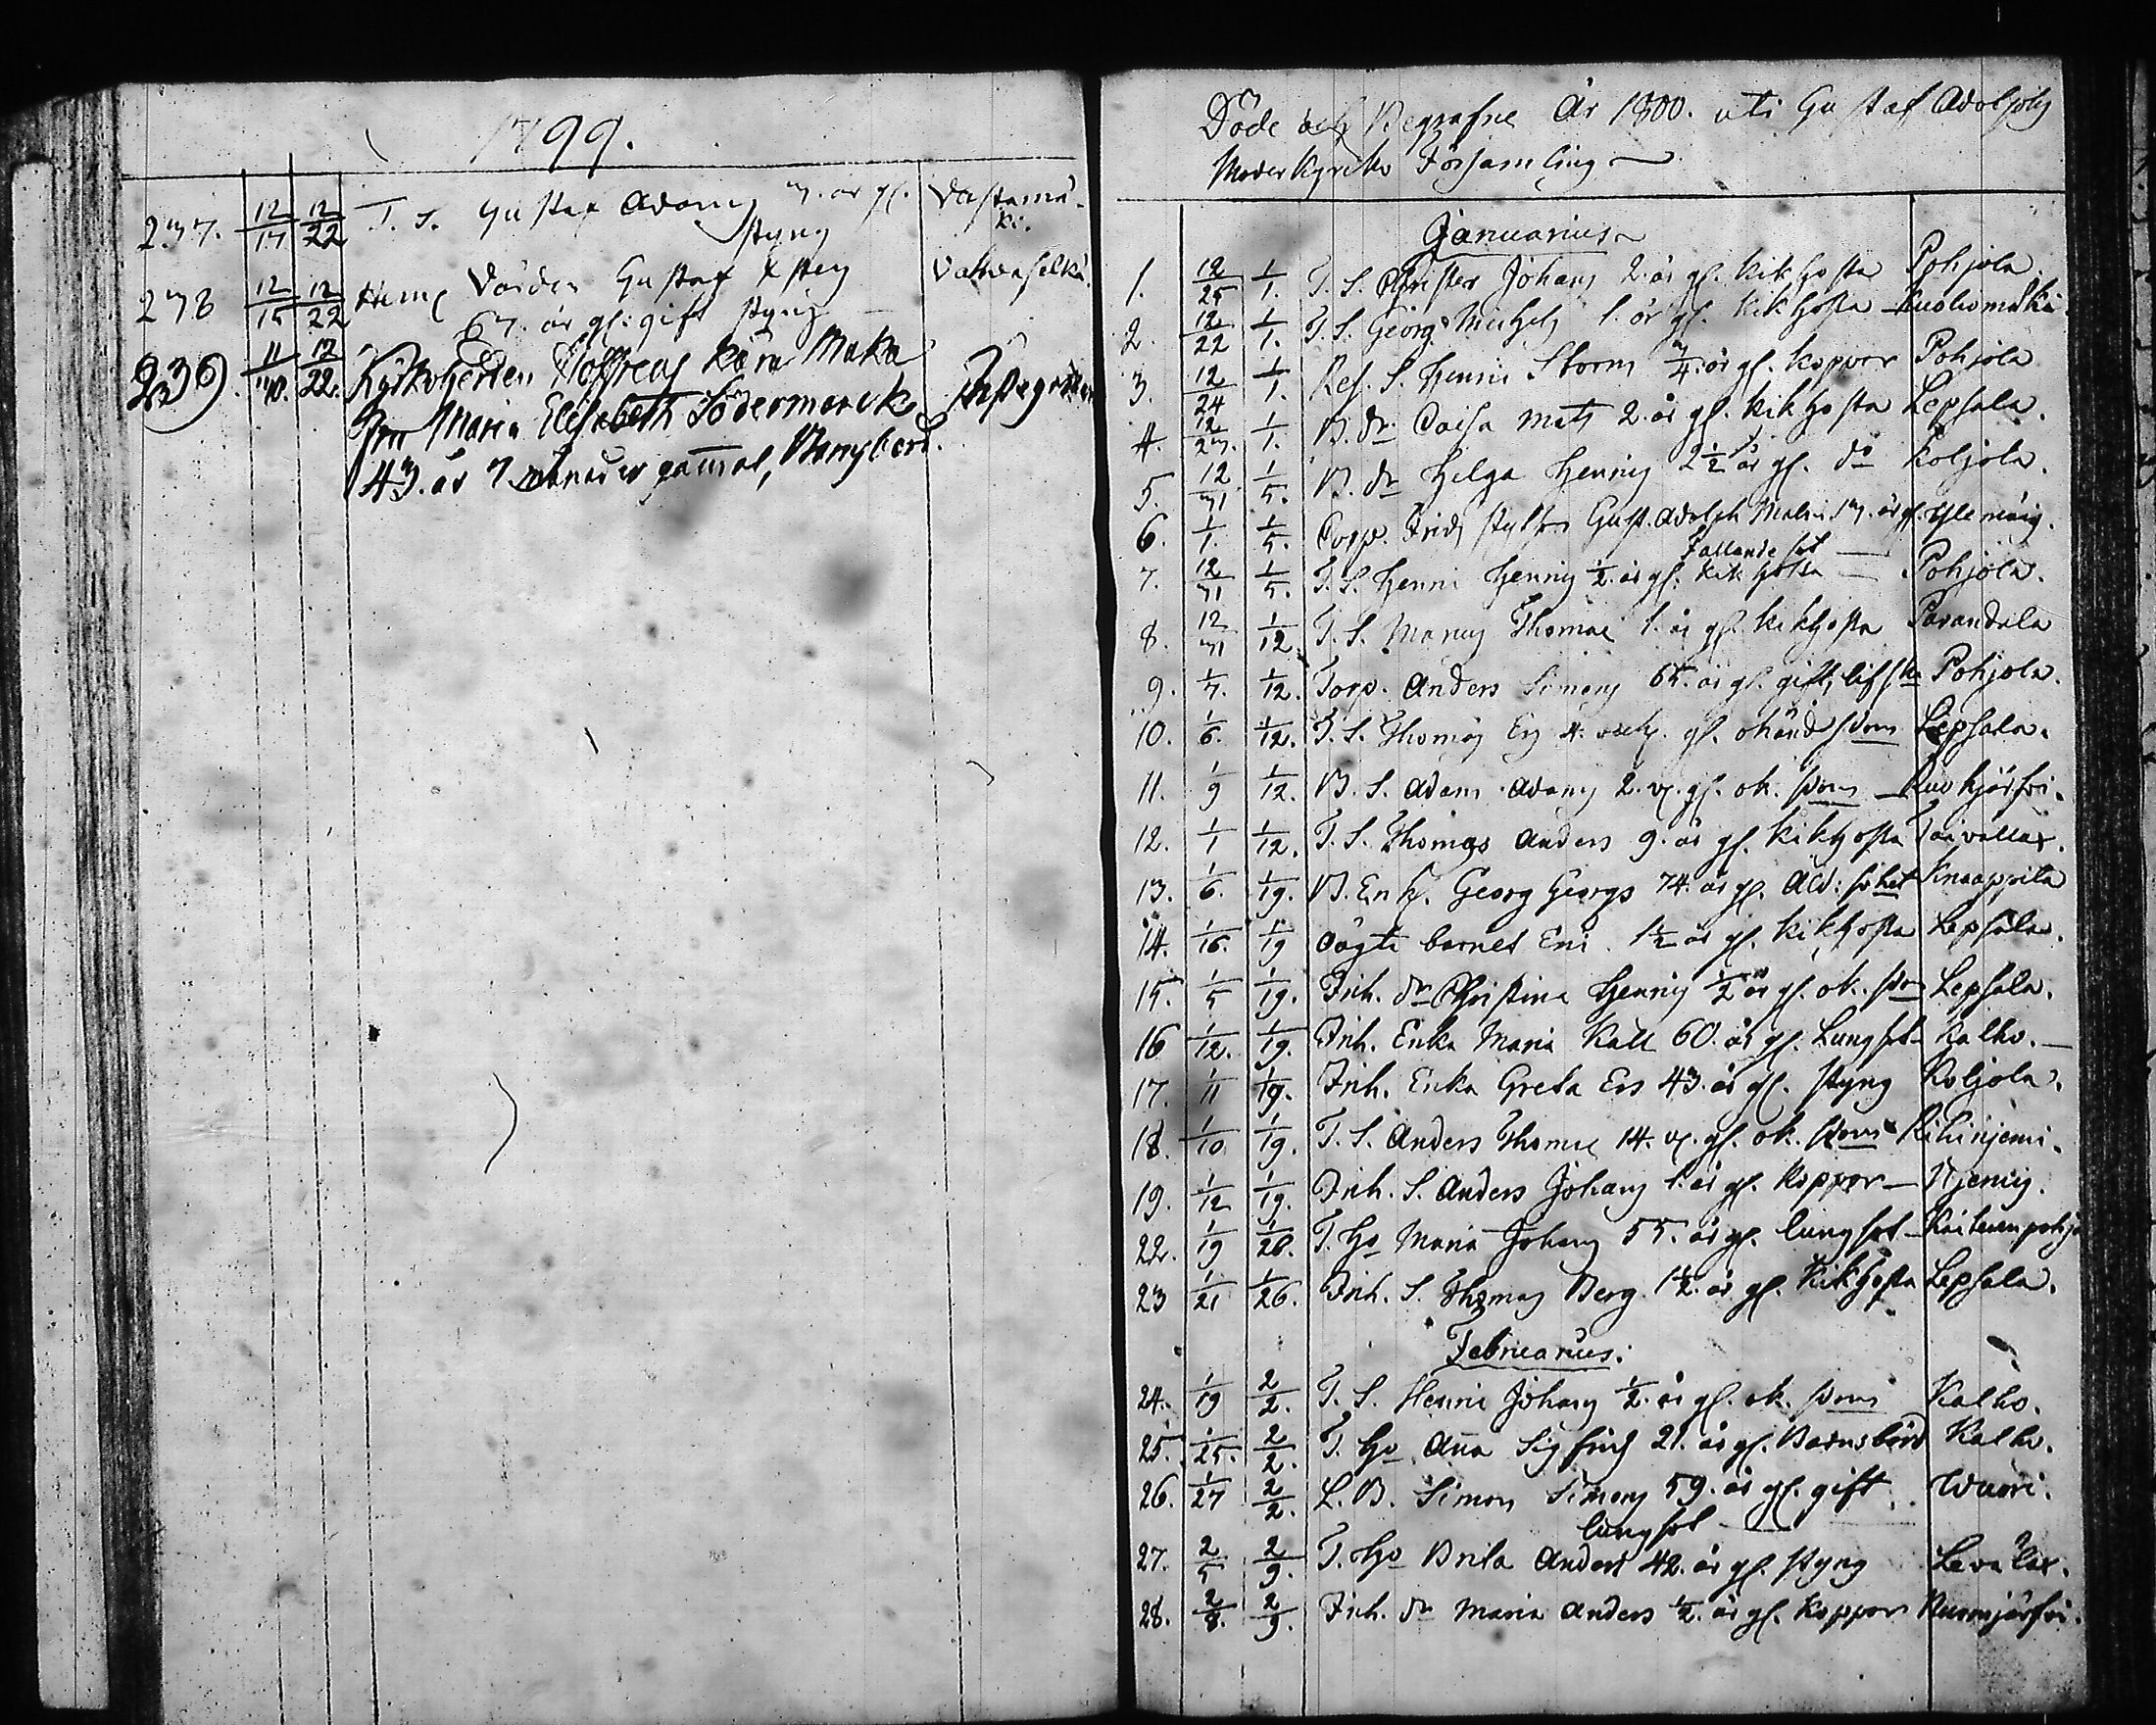 1799.
237. 12/17 12/22 T. S. Gustaf Adams 3. år gl. Vastamä-
styng ki.
238 12/15 12/22 Hem Gustaf Vahvaselkä
67. år gl. gift styng
239. 11/30. 12/22. Kyrkoherden Hoffrens kära Maka
Fru Maria Elisabeth Södermarck
43. år 7 månader gammal, Barnsbörd.
Döde och Begrafne År 1800. uti Gustaf Adolphs
Moderkyrko Församling
Januarius
1. 12/25 1/1. T. S. Christer Johans 2. år gl. kikhosta Pohjola
2. 12/22 1/1. T. S. Georg Michels 1. år gl. kikhosta
3. 12/24 1/1. S. Henric Storm 3/4. år gl. koppor Pohjola
4. 12/27. 1/1. B. dr Caisa Mats 2. år gl. kikhosta Lepsala.
5. 12/31 1/5. B. dr Helga Henrics 2 1/2 år gl. do Koljola.
6. 1/1. 1/5. Gust. Adolph 13. år gl.
Fallande sot
7. 12/31 1/5. T. S. Henric Henrics 1/2. år gl. kikhosta Pohjola.
8. 12/31 1/12. T. S. Marcus Thomae 1. år gl. kikhosta Parandala
9. 1/7. 1/12. Torp. Anders Simons 65. år gl. gift, Pohjola.
10. 1/6. 1/12. T. S. Thomas Ers 4. veck. gl. okänd sdom Lepsala.
11. 1/9 1/12. B. S. Adam Adams 2. v. gl. ok. sdom
12. 1/1 1/12. T. S. Thomas Anders 9. år gl. kikhosta Taivallax.
13. 1/6. 1/19. B. Enk. Georg Georgs 74. år gl. Knaappila
14. 1/16. 1/19 oägta barnet Eric 1 1/2 år gl. kikhosta Lepsala.
15. 1/5 1/19. Inh. dr Christina Henrics 1/2 år gl. ok. sdom Lepsala.
16 1/12. 1/19. Inh. Enka Maria Kall 60. år gl. Lungsot Kalho.
17. 1/11 1/19. Inh. Enka Greta Ers 43. år gl. styng Koljola.
18. 1/10 1/19. T. S. Anders Thomae 14. v. gl. ok. sdom
19. 1/12 1/19. Inh. S. Anders Johans 1. år gl. koppor
22. 1/19 1/26. T. Ho Maria Johans 55. år gl. lungsot
23 1/21 1/26. Inh. S. Thomas Berg 1 1/2. år gl. Kikhosta Lepsala.
Februarius:
24. 1/19 2/2. T. S. Henric Johans 1/2. år gl. ok. sdom Kalho.
25. 1/25. 2/2. T. Ho Anna Sigfrids 21. år gl. Barnsbörd Kalho.
26. 1/27 2/2. L. B. Simon Simons 59. år gl. gift Wuori.
lungsot
27. 2/5 2/9. T. Ho Brita Anders 42. år gl. styng
28. 2/8. 2/9. Inh. dr Maria Anders 1/2. år gl. koppor